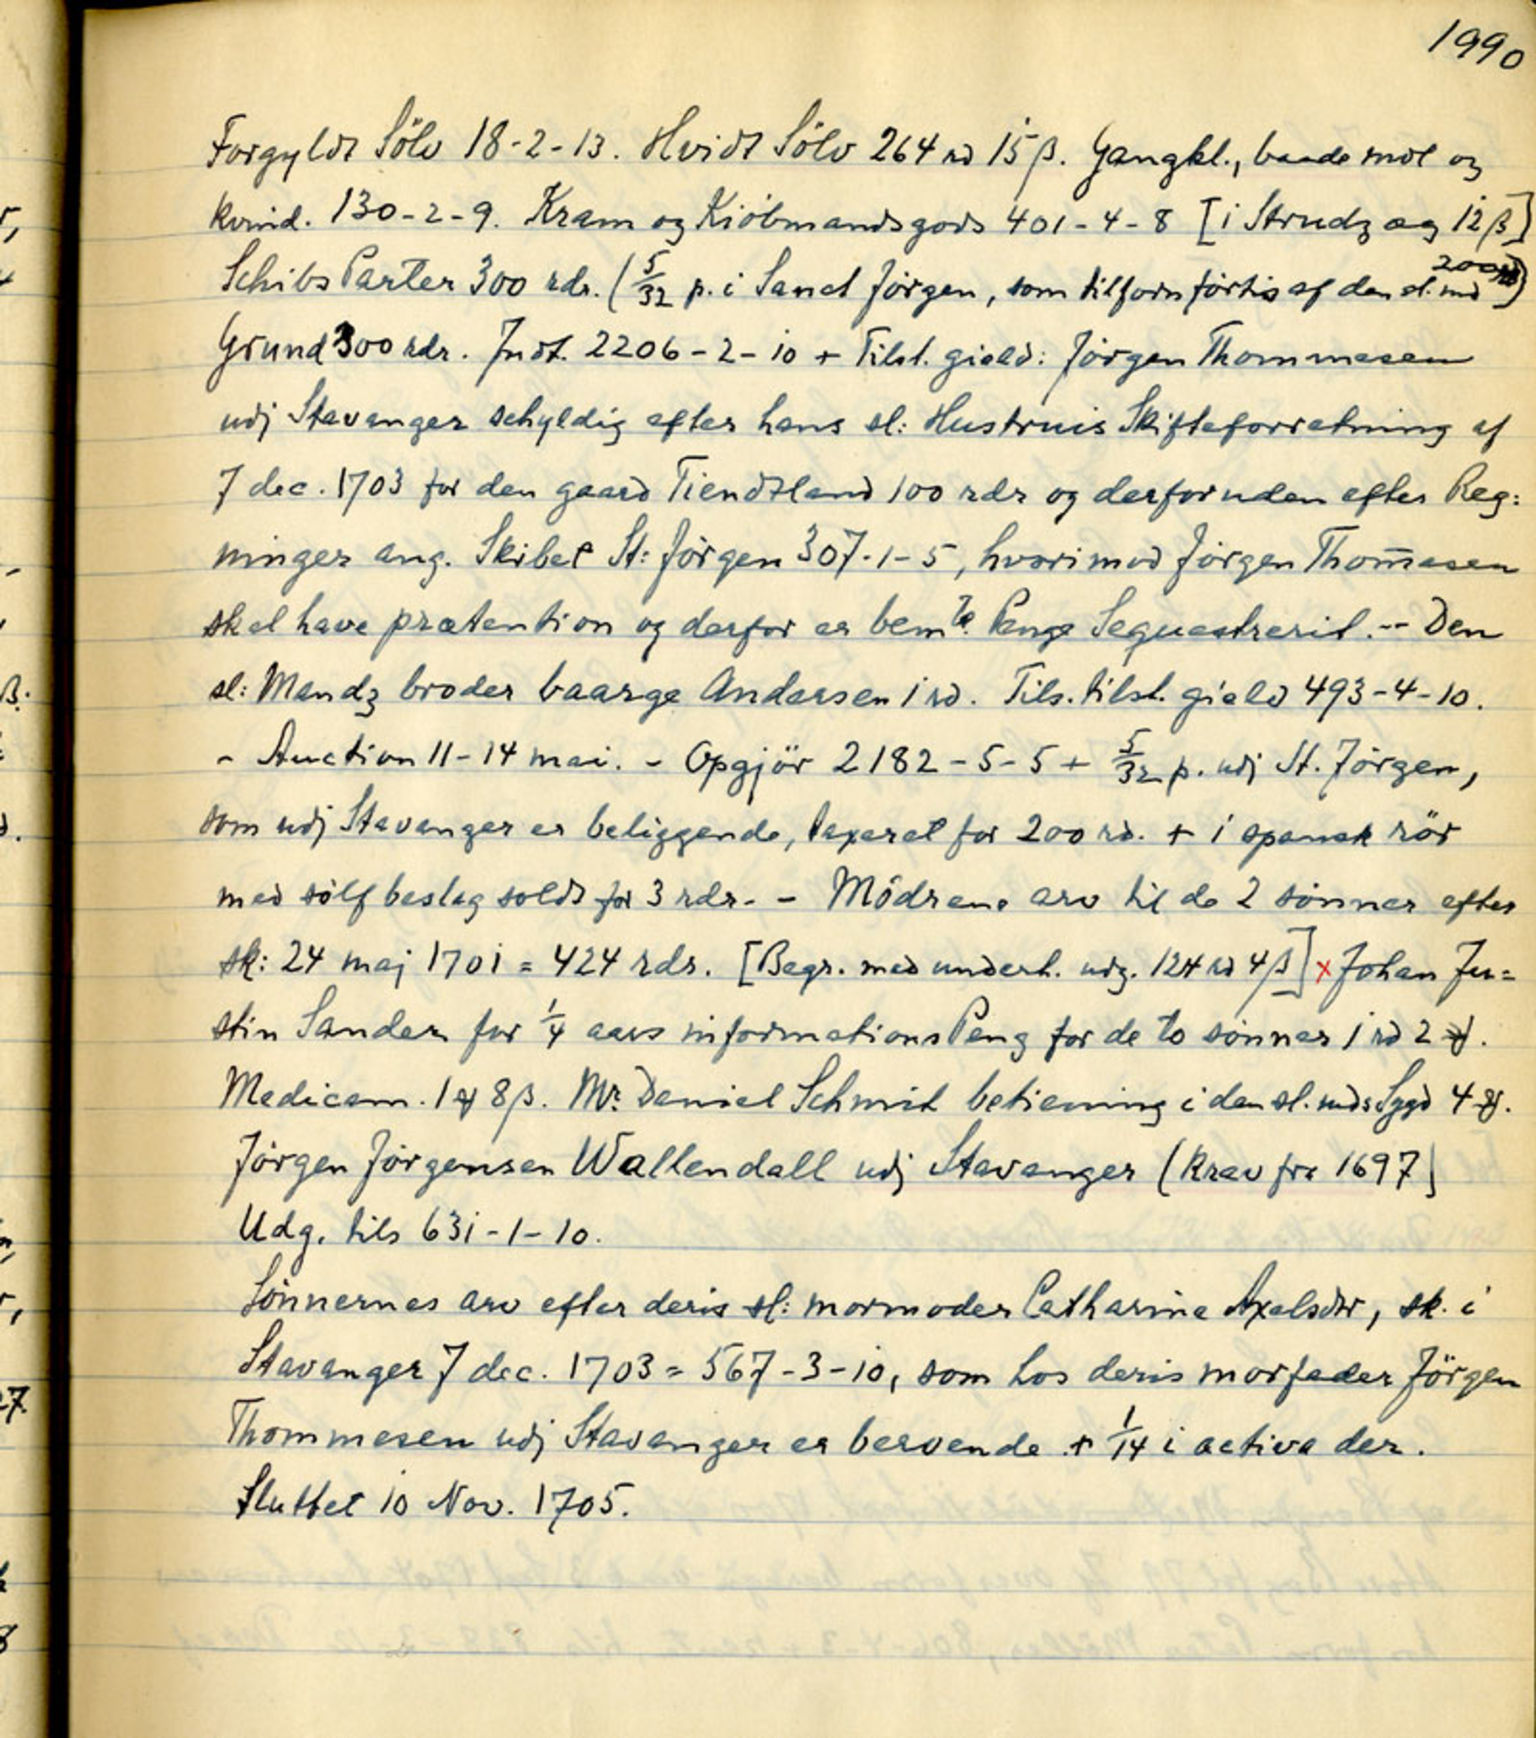 1990
Forgyldt Sölv 18-2-13. Hvidt Sölv 264 rd 15 β. Gangkl., baade mdl og
kvind. 130-2-9. Kram og Kiöbmandsgods 401-4-8 [i Strudz æg 12 β]
Schibs Parter 300 rdr. (5/32 p. i Sanct Jörgen, som tilforn förtis af den sl. md 200 rd)
Grund 300 rdr. Indt. 2206-2-10 + Tilst. gield: Jörgen Thommesen
udj Stavanger schyldig efter hans sl: Hustruis Skifteforretning af
7 dec. 1703 for den gaard Tiendtland 100 rdr og derforuden efter Reg:
ninger ang. Skibet St: Jörgen 307-1-5, hvorimod Jörgen Thom̄esen
skal have prætention og derfor er bemte. Penge Sequestrerit. -- Den
sl: Mandz broder baarge Andersen 1 rd. Tils. tilst. gield 493-4-10.
- Auction 11-14 mai. - Opgjör 2182-5-5 + 5/32 p. udj St. Jörgen,
som udj Stavanger er beliggende, taxeret for 200 rd. + 1 spansk rör
med sölfbeslag soldt for 3 rdr. - Mödrene arv til de 2 sönner efter
sk: 24 maj 1701 = 424 rdr. [Begr. med underh. udg. 124 rd 4 β] x Johan Ju=
stin Sander for 1/4 aars informations Peng for de to sönner 1 rd 2 ꝳ.
Medicam. 1 ꝳ 8 β. Mr. Daniel Schmit betiening i den sl. mds Sygd 4 ꝳ.
Jörgen Jörgensen Wallendall udj Stavanger (krav fra 1697)
Udg. tils 631-1-10.
Sönnernes arv efter deris sl: mormoder Catharina Axelsdtr, sk. i
Stavanger 7 dec. 1703 = 567-3-10, som hos deris morfader Jörgen
Thommesen udj Stavanger er beroende + 1/14 i activa der.
Sluttet 10 Nov. 1705.